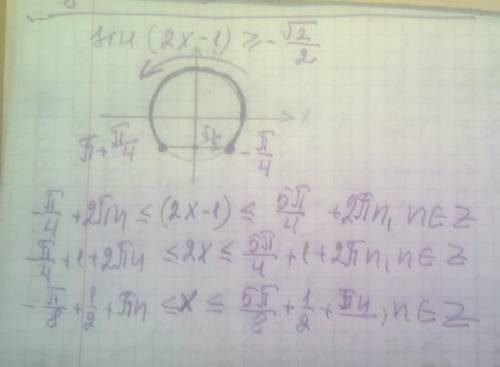 sin (2x-1) ≥ -√2/2
x
π+π/4
-π/4
-π/4 + 2πn ≤ (2x-1) ≤ 5π/4 + 2πn, n∈Z
-π/4 + 1 + 2πn ≤ 2x ≤ 5π/4 + 1 + 2πn, n∈Z
-π/8 + 1/2 + πn ≤ x ≤ 5π/8 + 1/2 + πn, n∈Z